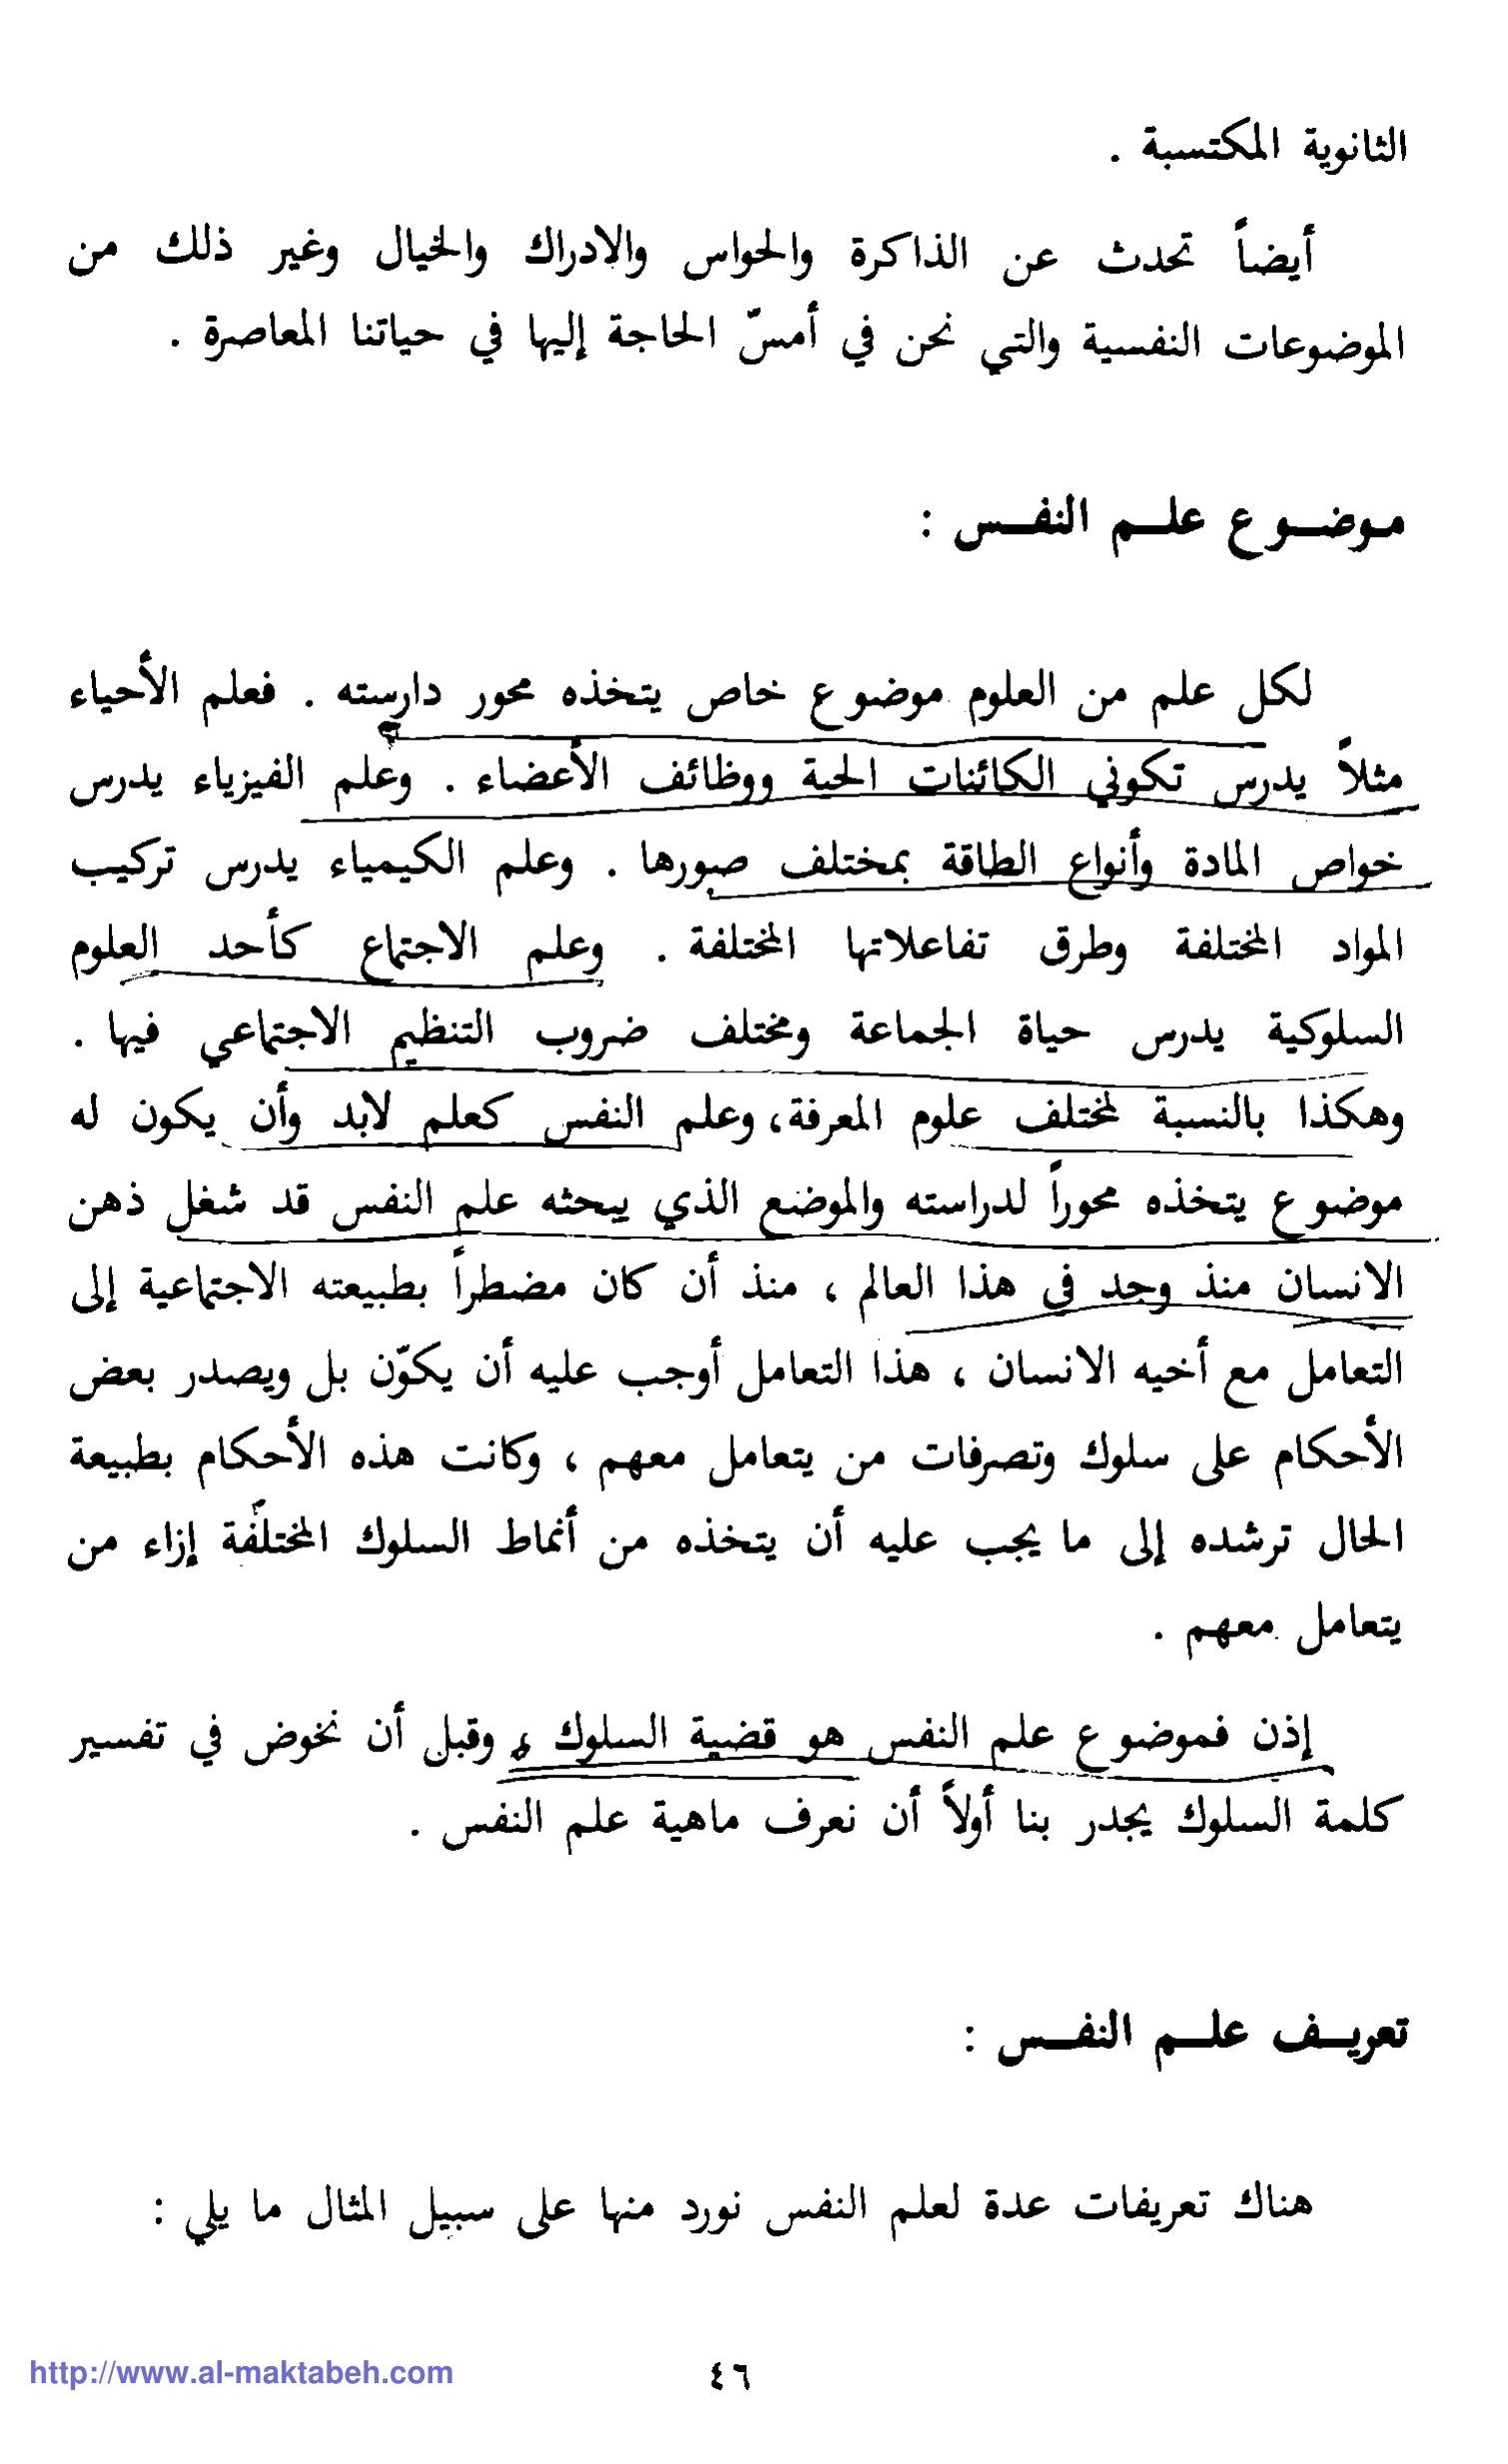 الثانوية المكتسبة .
أيضاً تحدث عن الذاكرة والحواس والادراك والخيال وغير ذلك من
الموضوعات النفسية والتي نحن في أمسّ الحاجة إليها في حياتنا المعاصرة .
موضوع علم النفس :
لكل علم من العلوم موضوع خاص يتخذه محور دارسته . فعلم الأحياء
مثلاً يدرس تكوني الكائنات الحية ووظائف الأعضاء . وعلم الفيزياء يدرس
خواص المادة وأنواع الطاقة بمختلف صورها . وعلم الكيمياء يدرس تركيب
المواد المختلفة وطرق تفاعلاتها المختلفة . وعلم الاجتماع كأحد العلوم
السلوكية يدرس حياة الجماعة ومختلف ضروب التنظيم الاجتماعي فيها .
وهكذا بالنسبة لمختلف علوم المعرفة، وعلم النفس كعلم لابد وأن يكون له
موضوع يتخذه محوراً لدراسته والموضع الذي يبحثه علم النفس قد شغل ذهن
الانسان منذ وجد في هذا العالم ، منذ أن كان مضطراً بطبيعته الاجتماعية إلى
التعامل مع أخيه الانسان ، هذا التعامل أوجب عليه أن يكوّن بل ويصدر بعض
الأحكام على سلوك وتصرفات من يتعامل معهم ، وكانت هذه الأحكام بطبيعة
الحال ترشده إلى ما يجب عليه أن يتخذه من أنماط السلوك المختلفة إزاء من
يتعامل معهم .
إذن فموضوع علم النفس هو قضية السلوك ، وقبل أن نخوض في تفسير
كلمة السلوك يجدر بنا أولاً أن نعرف ماهية علم النفس .
تعريف علم النفس :
هناك تعريفات عدة لعلم النفس نورد منها على سبيل المثال ما يلي :
٤٦
http://www.al-maktabeh.com